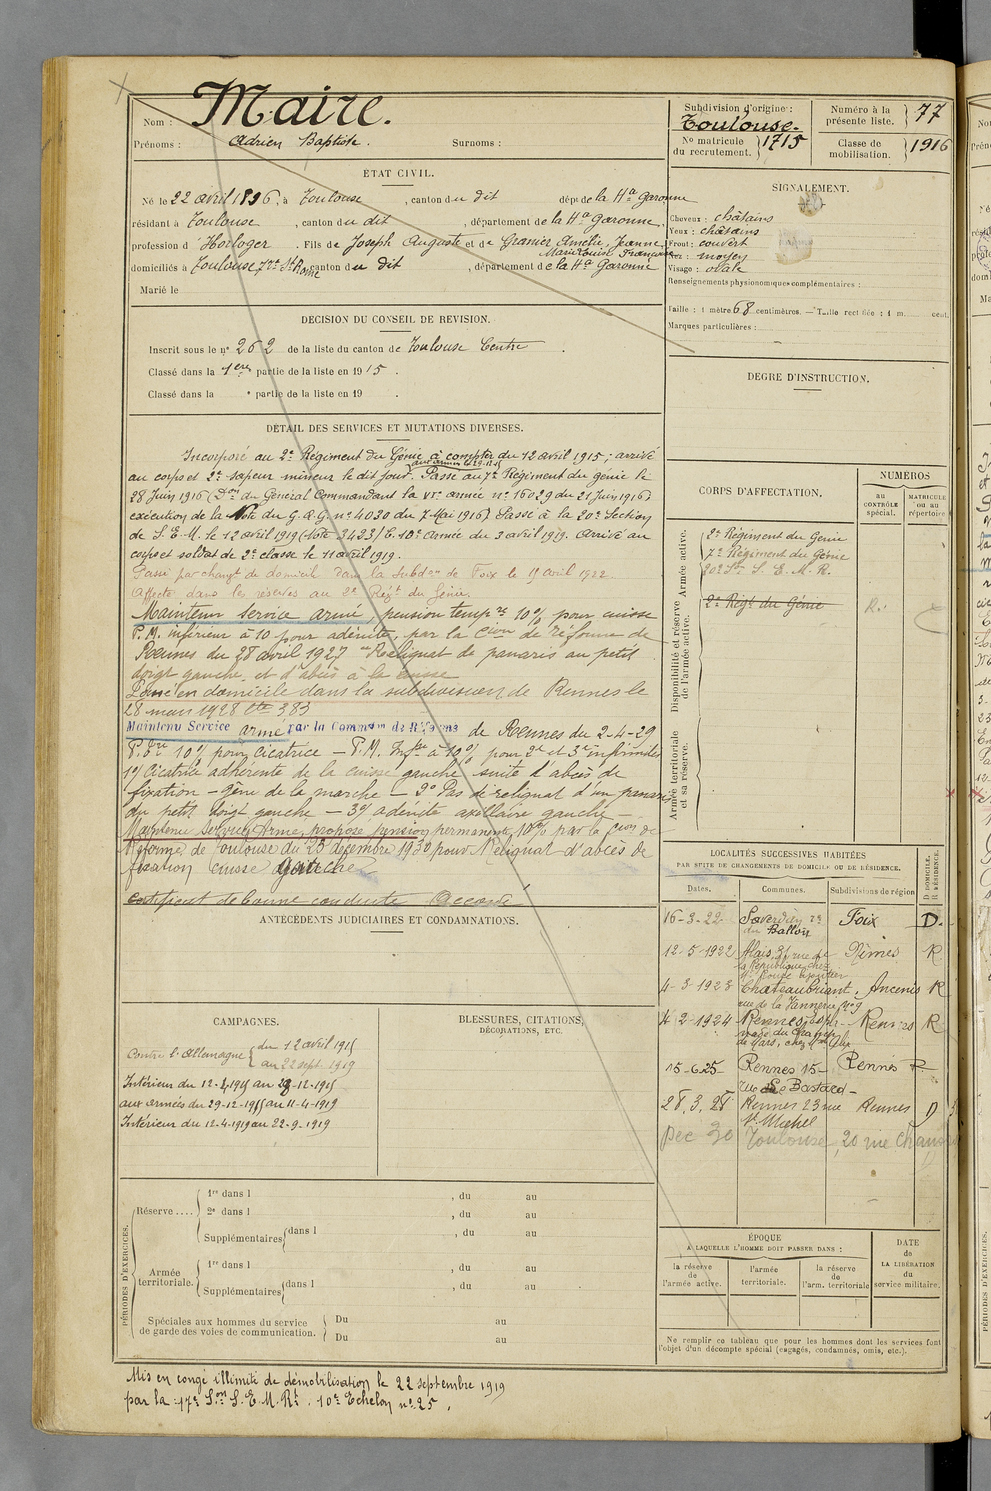 Nom : Maire.
Prénoms : Adrien Baptiste. Surnoms :
Subdivision d'origine : Toulouse.
No matricule du recrutement. } 1715
Numéro à la présente liste. } 77
Classe de mobilisation. } 1916
ÉTAT CIVIL.
Né le 22 avril 1896, à Toulouse, canton du dit dépt de la Hte Garonne
résidant à Toulouse, canton du dit, département de la Hte Garonne,
profession d'Horloger. Fils de Joseph Auguste et de Granier Amélie, Jeanne,
Marie Louise Françoise
domiciliés à Toulouse, 7 r. St Rome canton du dit, département de la Hte Garonne
Marié le
SIGNALEMENT.
Cheveux : châtains
Yeux : châtains
Front : couvert
Nez : moyen
Visage : ovale
Renseignements physionomiques complémentaires :
Taille : 1 mètre 68 centimètres. — Taille rectifiée : 1 m. cent.
Marques particulières :
DÉCISION DU CONSEIL DE RÉVISION.
Inscrit sous le no 262 de la liste du canton de Toulouse Centre.
Classé dans la 1ère partie de la liste en 1915.
Classé dans la e partie de la liste en 19 .
DEGRÉ D'INSTRUCTION.
DÉTAIL DES SERVICES ET MUTATIONS DIVERSES.
Incorporé au 2e Régiment du Génie à compter du 12 avril 1915 ; arrivé
aux armées le 29-12-15
au corps et 2e sapeur mineur le dit jour. Passé au 7e Régiment du génie le
28 Juin 1916 (Don du Général Commandant la VIe armée no 16029 du 21 Juin 1916)
exécution de la Note du G.Q.G. no 4030 du 7 Mai 1916). Passé à la 20e Section
de S.E.M. le 12 avril 1919 (Note 3423/E. 10e Armée du 3 avril 1919. Arrivé au
corps et soldat de 2e classe le 11 avril 1919.
Passé par changt de domicile dans la Subdon de Foix le 19 avril 1922
Affecté dans les réserves au 2e Régt du Génie.
Maintenu service armé, pension tempre 10% pour cuisse
P.M. inférieur à 10 pour adénite, par la Cion de réforme de
Rennes du 28 avril 1927 Reliquat de panaris au petit
doigt gauche et d'abcès à la cuisse
Passé en domicile dans la subdivision de Rennes le
28 mars 1928 383
Maintenu Service armé par la Common de Réforme de Rennes du 2-4-29
10% pour cicatrice — P.M. Infre à 10% pour 2e et 3e infirmités
1o/ Cicatrice adhérente de la cuisse gauche suite d'abcès de
fixation — gêne de la marche — 2o Pas de reliquat d'un panaris
du petit doigt gauche — 3o/ adénite axillaire gauche —
Maintenu Service Armé, propose pension permanente 10% par la Cion de
Réforme de Toulouse du 23 décembre 1930 pour Reliquat d'abcès de
fixation cuisse gauche
certificat de bonne conduite Accordé
CORPS D'AFFECTATION.
NUMÉROS
au CONTRÔLE spécial.
MATRICULE ou au répertoire
Armée active.
2e Régiment du Génie
7e Régiment du Génie
20e Son S.E.M.R.
Disponibilité et réserve de l'armée active.
2e Régt du Génie
R.
Armée territoriale et sa réserve.
LOCALITÉS SUCCESSIVES HABITÉES
PAR SUITE DE CHANGEMENTS DE DOMICILE OU DE RÉSIDENCE.
Dates. Communes. Subdivisions de région D. DOMICILE. R. RÉSIDENCE.
16-3-22 Saverdun Foix D.
du Ballon
12-5-1922 Alais, 31 rue de Nîmes R
la République chez
4-3-1923 Châteaubriant, Ancenis R
rue de la Tannerie No 9
4-2-1924 Rennes Rennes R
de Mars, chez
15-6-25 Rennes 15 — Rennes R
rue Le Bastard —
28.3.28 Rennes 23 rue Rennes D
St Michel
Dec 30 Toulouse, 20 rue
ANTÉCÉDENTS JUDICIAIRES ET CONDAMNATIONS.
CAMPAGNES.
Contre l'Allemagne { du 12 avril 1915
au 22 sept. 1919
Intérieur du 12-4-1915 au 28-12-1915
aux armées du 29-12-1915 au 11-4-1919
Intérieur du 12-4-1919 au 22-9-1919
BLESSURES, CITATIONS,
DÉCORATIONS, ETC.
PÉRIODES D'EXERCICES.
Réserve ....
1re dans l , du au
2e dans l , du au
Supplémentaires { dans l , du au
Armée territoriale.
1re dans l , du au
Supplémentaires { dans l , du au
Spéciales aux hommes du service
de garde des voies de communication.
Du au
Du au
ÉPOQUE
A LAQUELLE L'HOMME DOIT PASSER DANS :
la réserve de l'armée active.
l'armée territoriale.
la réserve de l'arm. territoriale
DATE de LA LIBÉRATION du service militaire.
Ne remplir ce tableau que pour les hommes dont les services font
l'objet d'un décompte spécial (engagés, condamnés, omis, etc.).
Mis en congé illimité de démobilisation le 22 septembre 1919
par la 17e Son S.E.M.R. 10e Echelon no 25.